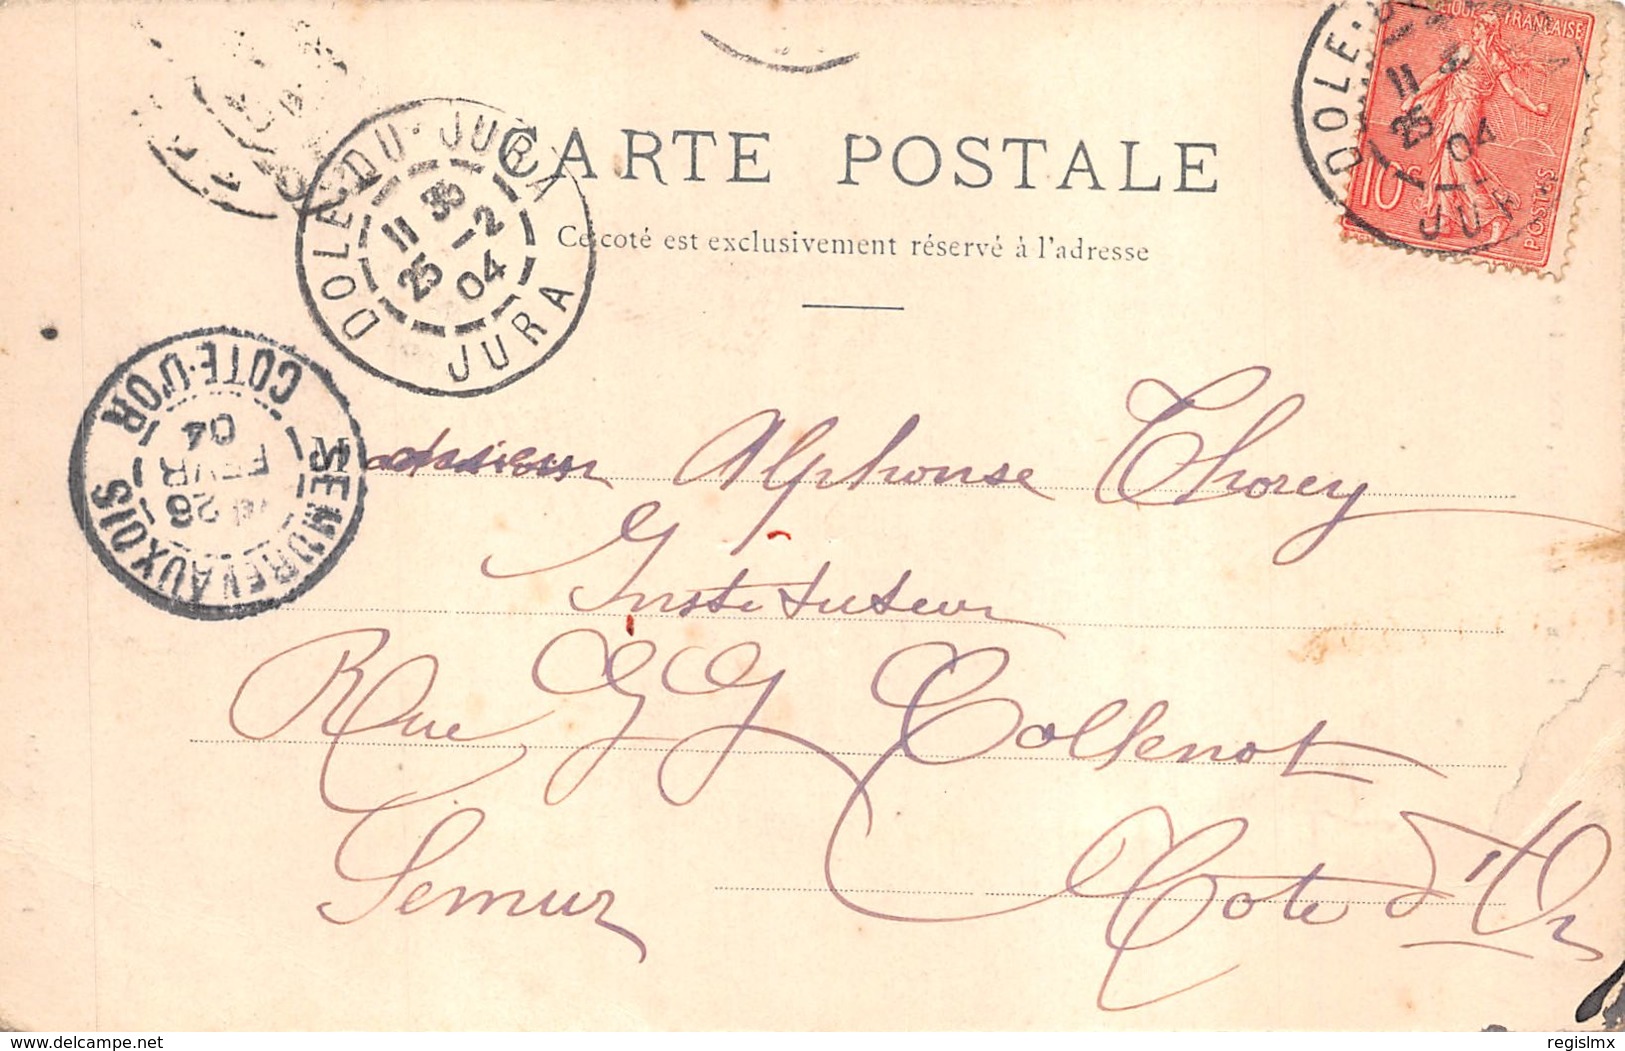 CARTE POSTALE
Ce coté est exclusivement réservé à l'adresse
RÉPUBLIQUE FRANÇAISE
10c
POSTES
DOLE-DU-JURA
11 35
25 -2
04
JURA
DOLE
11
25
04
JURA
SEMUR EN AUXOIS
26
FEVR
04
COTE-D'OR
Monsieur Alphonse Thorey
Instituteur
Rue J J Collenot
Semur Cote d'Or
delcampe.net
regislmx